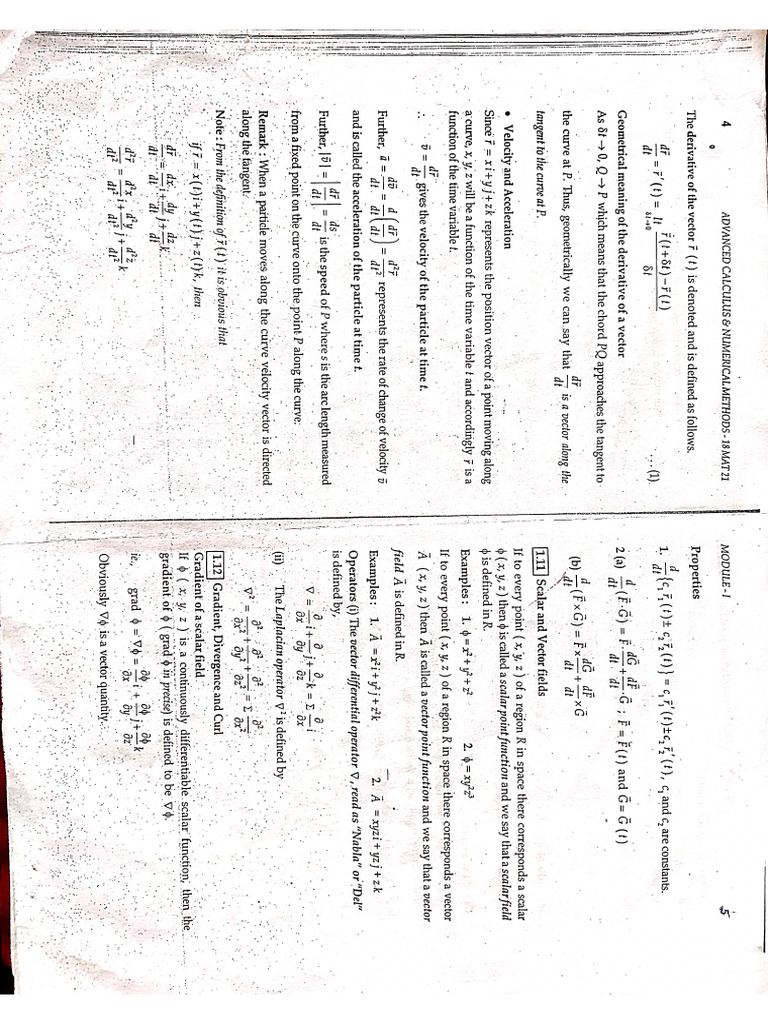 4 ADVANCED CALCULUS & NUMERICAL METHODS - 18 MAT 21
The derivative of the vector r̄ (t) is denoted and is defined as follows.
dr̄/dt = r̄ ′(t) = lt δt→0 [r̄ (t+δt) − r̄ (t)] / δt ... (1)
Geometrical meaning of the derivative of a vector
As δt → 0, Q → P which means that the chord PQ approaches the tangent to
the curve at P. Thus, geometrically we can say that dr̄/dt is a vector along the
tangent to the curve at P.
• Velocity and Acceleration
Since r̄ = x i + y j + z k represents the position vector of a point moving along
a curve, x, y, z will be a function of the time variable t and accordingly r̄ is a
function of the time variable t.
∴ v̄ = dr̄/dt gives the velocity of the particle at time t.
Further, ā = dv̄/dt = d/dt (dr̄/dt) = d²r̄/dt² represents the rate of change of velocity v̄
and is called the acceleration of the particle at time t.
Further, |v̄| = |dr̄/dt| = ds/dt is the speed of P where s is the arc length measured
from a fixed point on the curve onto the point P along the curve.
Remark : When a particle moves along the curve velocity vector is directed
along the tangent.
Note : From the definition of r̄ (t) it is obvious that
if r̄ = x(t) i + y(t) j + z(t) k, then
dr̄/dt = dx/dt i + dy/dt j + dz/dt k
d²r̄/dt² = d²x/dt² i + d²y/dt² j + d²z/dt² k
MODULE - 1 5
Properties
1. d/dt {c₁ r̄₁(t) ± c₂ r̄₂(t)} = c₁ r̄₁′(t) ± c₂ r̄₂′(t), c₁ and c₂ are constants.
2 (a) d/dt (F̄·Ḡ) = F̄· dḠ/dt + dF̄/dt ·Ḡ ; F̄ = F̄(t) and Ḡ = Ḡ (t)
(b) d/dt (F̄ × Ḡ) = F̄ × dḠ/dt + dF̄/dt × Ḡ
1.11 Scalar and Vector fields
If to every point (x, y, z) of a region R in space there corresponds a scalar
ϕ (x, y, z) then ϕ is called a scalar point function and we say that a scalar field
ϕ is defined in R.
Examples : 1. ϕ = x² + y² + z² 2. ϕ = xy²z³
If to every point (x, y, z) of a region R in space there corresponds a vector
Ā (x, y, z) then Ā is called a vector point function and we say that a vector
field Ā is defined in R.
Examples : 1. Ā = x² i + y² j + z² k 2. Ā = xyz i + yz j + z k
Operators (i) The vector differential operator ∇, read as "Nabla" or "Del"
is defined by,
∇ = ∂/∂x i + ∂/∂y j + ∂/∂z k = Σ ∂/∂x i
(ii) The Laplacian operator ∇² is defined by
∇² = ∂²/∂x² + ∂²/∂y² + ∂²/∂z² = Σ ∂²/∂x²
1.12 Gradient, Divergence and Curl
Gradient of a scalar field
If ϕ (x, y, z) is a continuously differentiable scalar function, then the
gradient of ϕ (grad ϕ in precise) is defined to be ∇ϕ.
ie., grad ϕ = ∇ϕ = ∂ϕ/∂x i + ∂ϕ/∂y j + ∂ϕ/∂z k
Obviously ∇ϕ is a vector quantity.